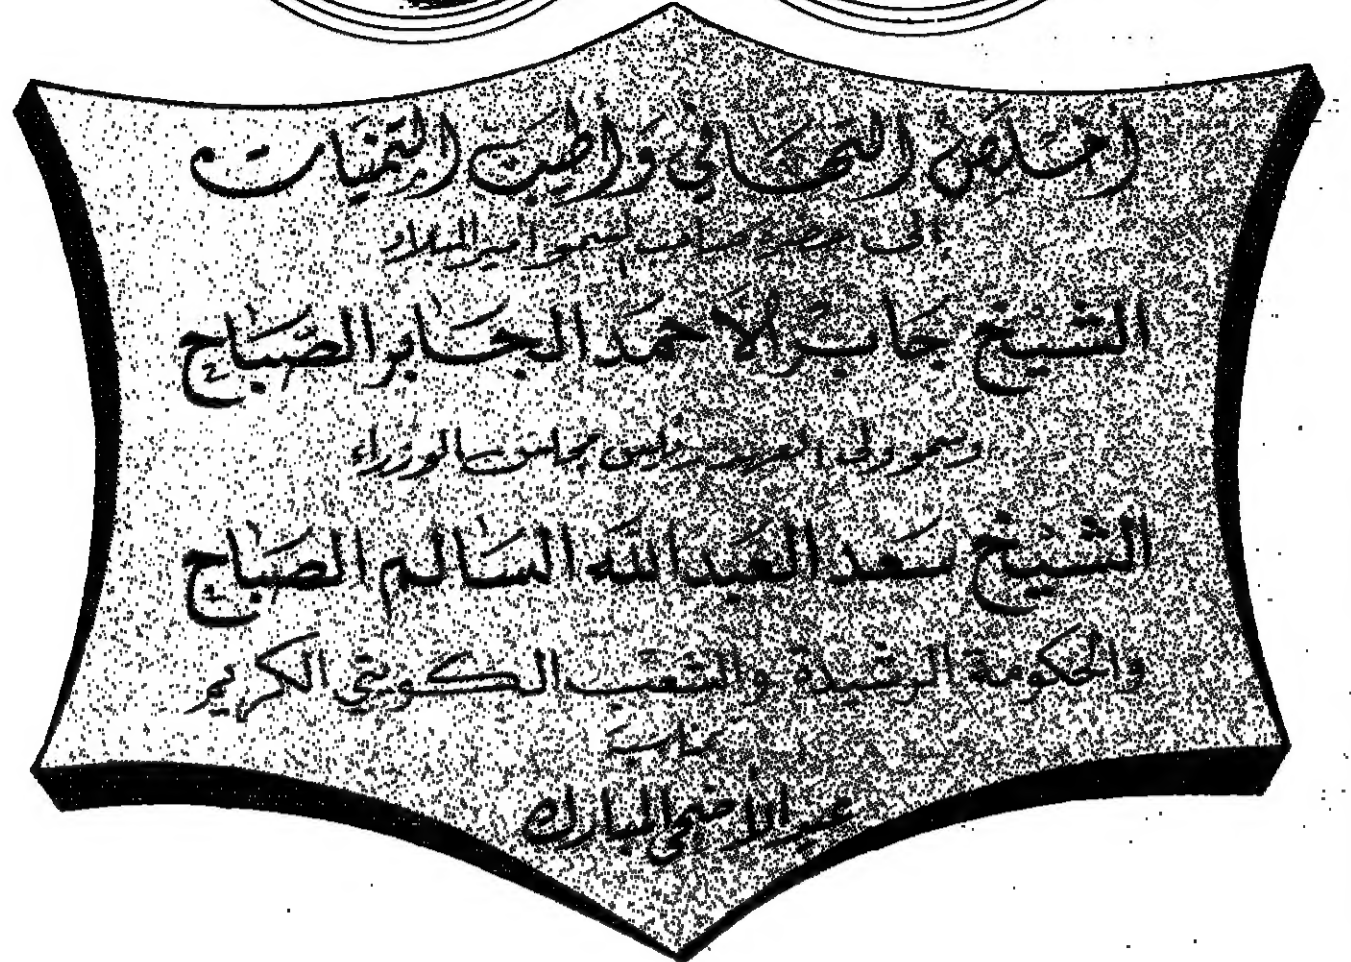 أخلص التهاني وأطيب التمنيات
إلى حضرة صاحب السمو أمير البلاد
الشيخ جابر الأحمد الجابر الصباح
وسمو ولي العهد رئيس مجلس الوزراء
الشيخ سعد العبدالله السالم الصباح
والحكومة الرشيدة والشعب الكويتي الكريم
بمناسبة
عيد الأضحى المبارك